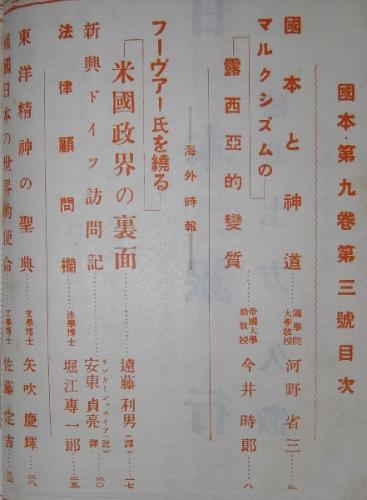 國本・第九卷第三號目次
國本と神道 國學院大學教授 河野省三
マルクシズムの露西亞的變質 帝國大學助教授 今井時郎 八
海外時報
フーヴァー氏を繞る米國政界の裏面 遠藤利男(譯) 一七
新興ドイツ訪問記 安東貞亮(譯) 二〇
法律顧問欄 法學博士 堀江專一郎 二五
東洋精神の聖典 文學博士 矢吹慶輝 二八
國日本の世界的使命 工學博士 佐藤定吉